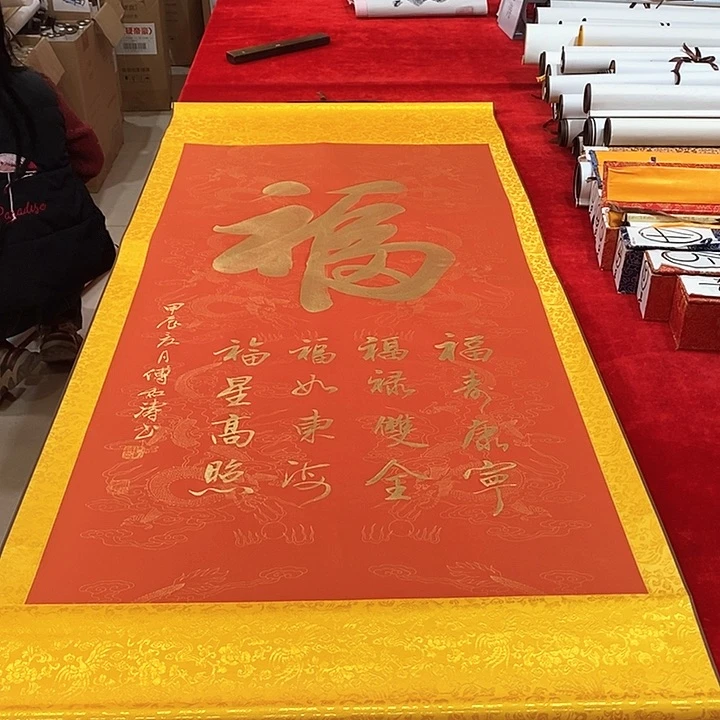 福
福壽康寧
福禄雙全
福如東海
福星高照
甲辰五月傅如濤书
Paradise